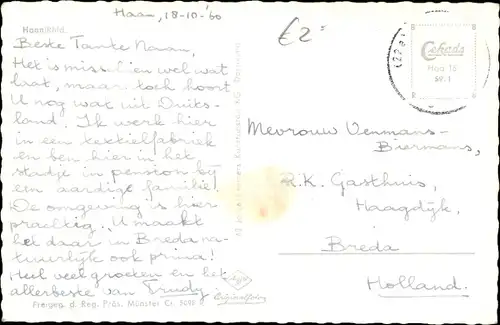 Haan, 18-10-'60
£2=
Haan/Rhld.
Beste Tante Naan,
Het is misschien wel wat
laat, maar toch hoort
U nog wat uit Duits-
land. Ik werk hier
in een textielfabriek
en ben hier in het
stadje in pension bij
een aardige familie!
De omgeving is hier
prachtig. U maakt
het daar in Breda na-
tuurlijk ook prima!
Heel veel groeten en het
allerbeste van Trudy
Freigeg. d. Reg. Präs. Münster Cr. 5080
Cekade
Haa 15
59:1
Mevrouw Venmans-
Biermans,
R.K. Gasthuis,
Haagdijk,
Breda
Holland.
Agfa
Originalfoto